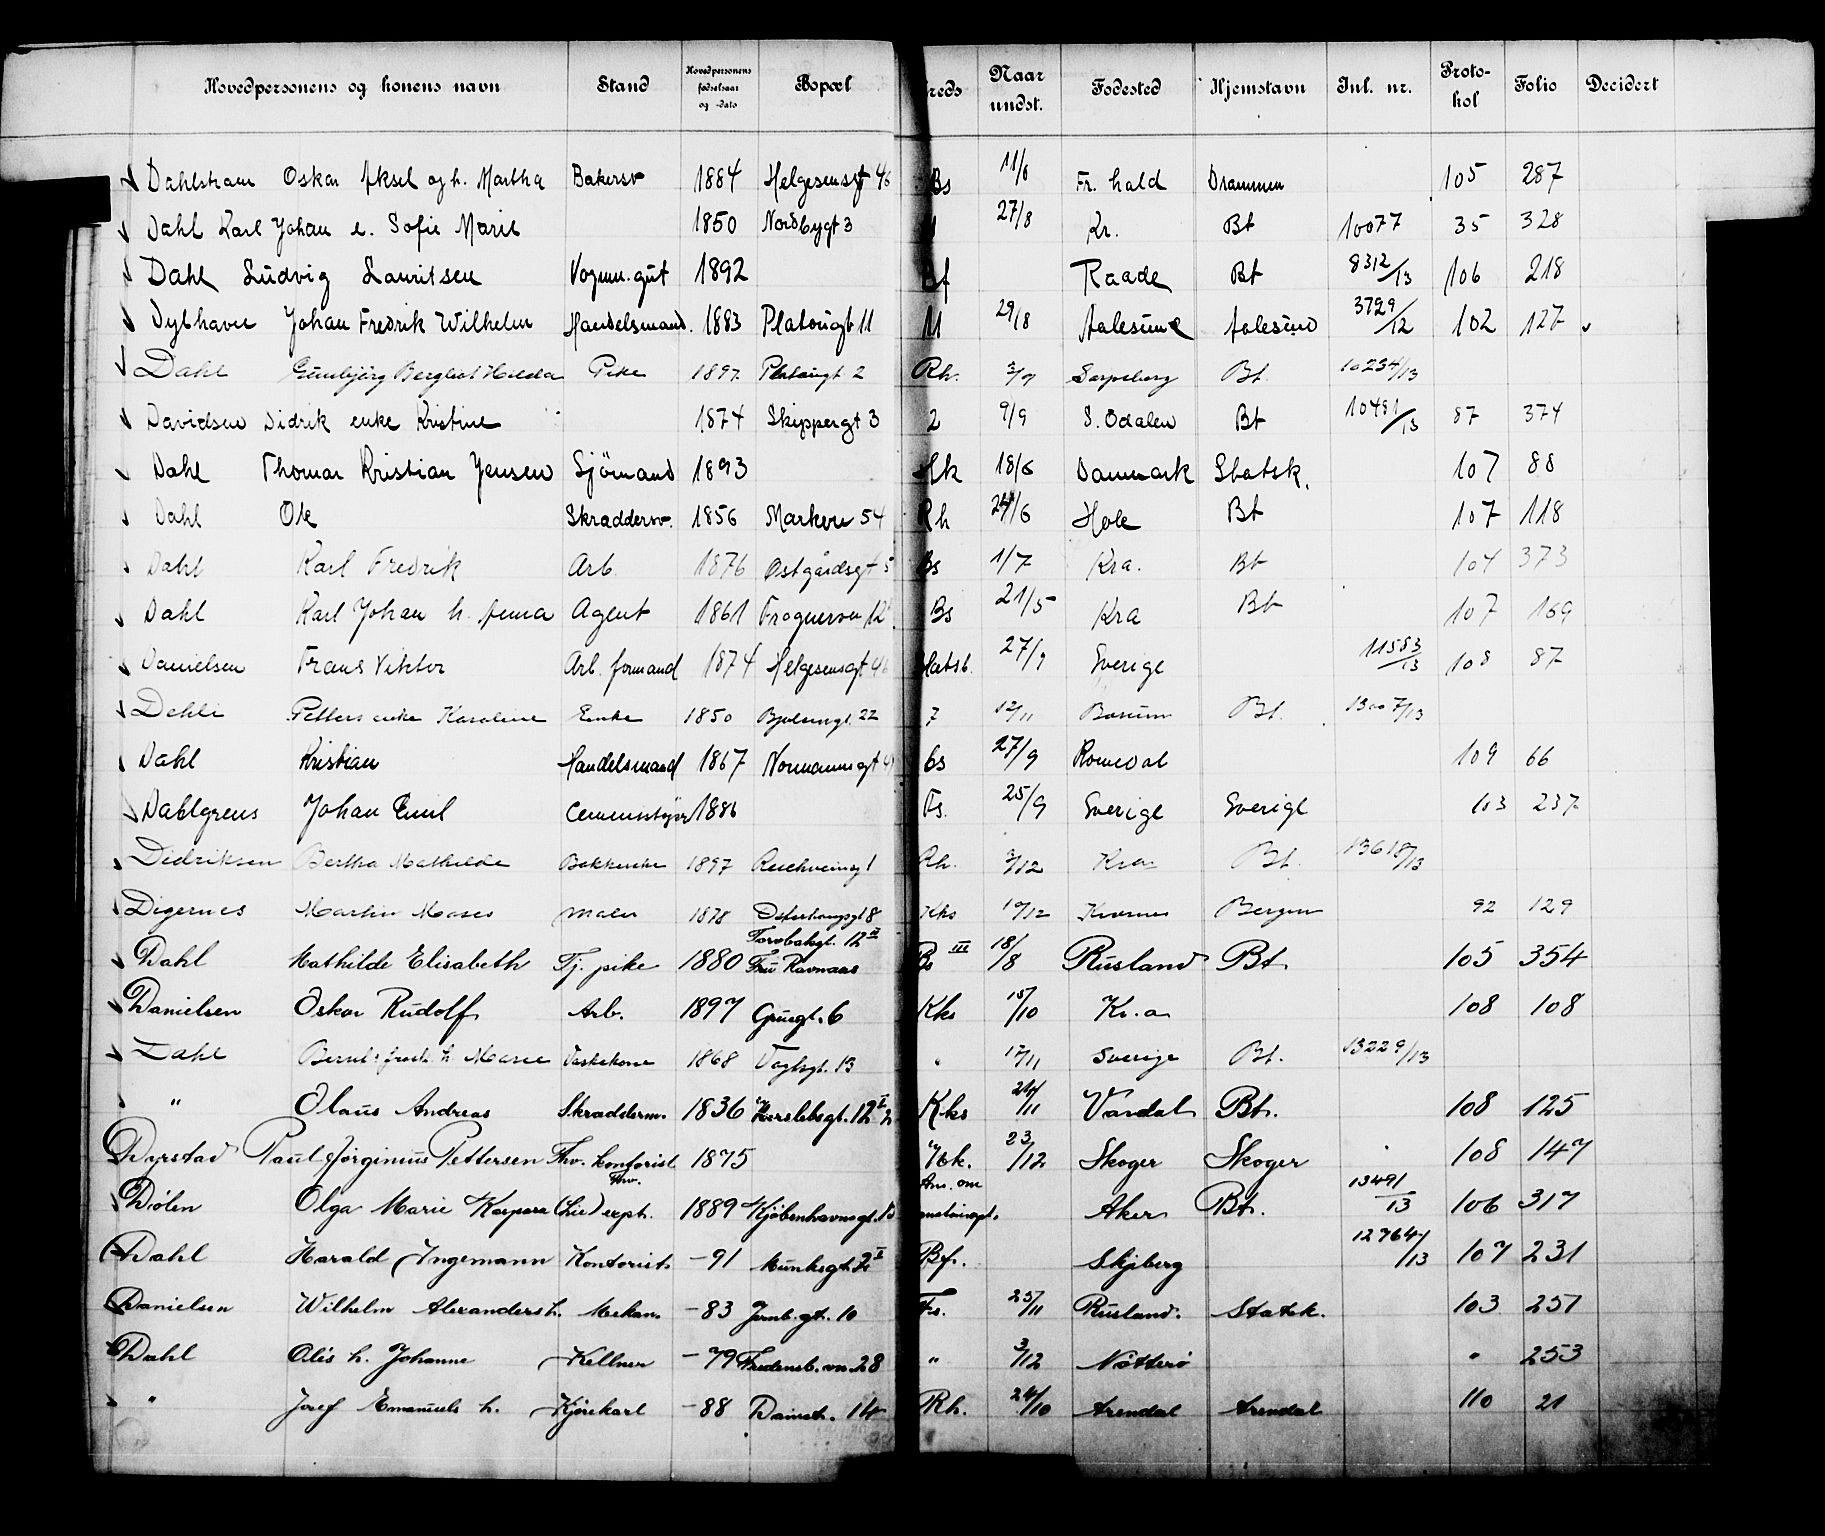 Hovedpersonens og konens navn Stand Hovedpersonens fødselsaar og -dato Bopæl Kreds Naar undst. Fødested Hjemstavn Inl. nr. Protokol Folio Decidert
Oskar Aksel og h. Martha Bakersv 1884 Helgesensgt 46 Bs 11/6 Fr. hald Drammen 105 287
Dahl Karl Johan e. Sofie Marie 1850 Nordbygt 3 27/8 Kr. Bt 10077 35 328
Dahl Ludvig Lauritsen Vognm. gut 1892 Bf Raade Bt 8312/13 106 218
Dybhavn Johan Fredrik Wilhelm Handelsmand. 1883 Platougt 11 11 29/8 Aalesund Aalesund 3729/12 102 127
Dahl Gunbjörg Bergliot Hilda Pike 1897 Platougt 2 Rh. 3/9 Sarpsborg Bt. 10234/13
Davidsen Didrik enke Kristine 1874 Skippergt 3 2 9/9 S. Odalen Bt 10491/13 87 374
Dahl Thomas Kristian Jensen Sjömand 1893 18/6 Danmark Statsk. 107 88
Dahl Ole Skraddersv. 1856 Markvn 54 Rh 24/6 Hole Bt 107 118
Dahl Karl Fredrik Arb. 1876 Østgårdsgt 5 Bs 1/7 Kra. Bt 104 373
Dahl Karl Johan h. Anna Agent 1861 Frognervn 12 Bs 21/5 Kra Bt 107 169
Danielsen Frans Viktor Arb. formand 1874 Helgesensgt 46 27/9 Sverige 11583/13 108 87
Dehli Petters enke Karoline Enke 1850 Bjølsengt. 22 7 12/11 Bærum Bt. 13007/13
Dahl Kristian Handelsmand 1867 Normannsgt Gs 27/9 Romedal 109 66
Dahlgrens Johan Emil Cementstøper 1886 Fs. 25/9 Sverige Sverige 103 237
Didriksen Bertha Mathilde 1897 Rh. 3/12 Kra Bt. 13618/13
Digernes Martin Moses Maler 1878 Kks 10/12 Bergen 92 129
Dahl Mathilde Elisabeth Tj. pike 1880 Torvbakgt. 12 II Fru Ravnaas Bs III 18/8 Rusland Bt. 105 354
Danielsen Oskar Rudolf Arb. 1897 Grusgt. 6 Kks 15/10 Kr.a 108 108
Dahl h. Marie Vaskekone 1868 Vogtsgt. 13 " 12/11 Sverige Bt. 13229/13
" Olaus Andreas Skradderm. 1836 Herslebsgt. 12 I Kks 24/11 Vardal Bt. 108 125
Dyrstad Paul Jørginius Pettersen Fhv. kontorist 1875 23/12 Skoger Skoger 108 147
Dølen Olga Marie Kaspara Fhv. expt. 1889 Kjøbenhavnsgt. Ans. om Aker Bt. 13491/13 106 317
Dahl Harald Ingemann Kontorist -91 Munkegt. I Bf. Skjeberg 12764/13 107 231
Danielsen Wilhelm Alexanders h. Mekan. -83 Jernb.gt. 10 Fs. 25/11 Rusland. Statsk. 103 251
Dahl h. Johanne Kellner -79 Fredensb.vn 28 " 3/12 Nötterö " 253
" Josef Emanuels h. Kjörekarl -88 Rh. 24/10 Arendal Arendal 110 21